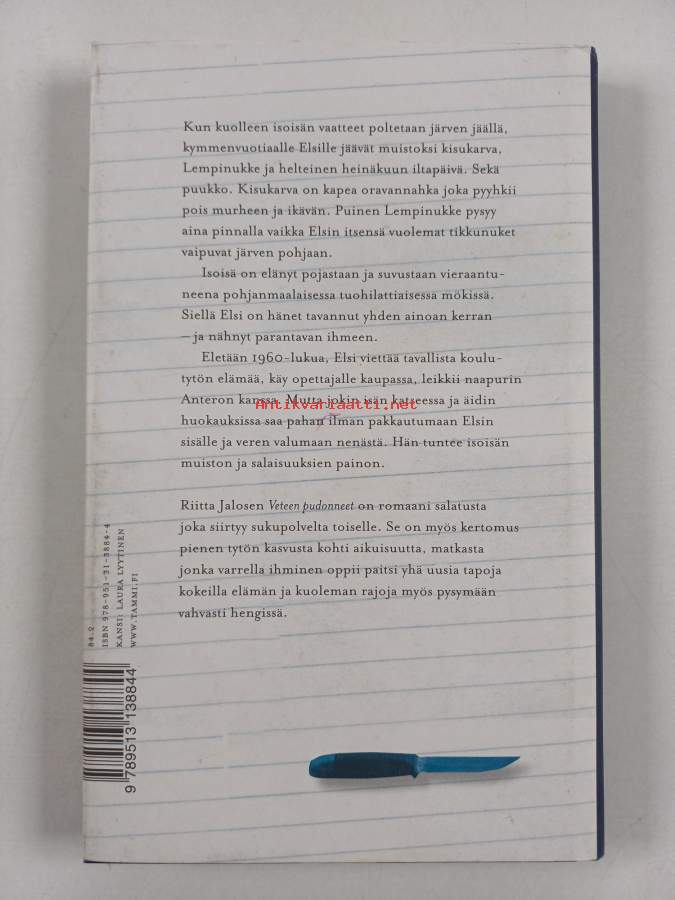 Kun kuolleen isoisän vaatteet poltetaan järven jäällä,
kymmenvuotiaalle Elsille jäävät muistoksi kisukarva,
Lempinukke ja helteinen heinäkuun iltapäivä. Sekä
puukko. Kisukarva on kapea oravannahka joka pyyhkii
pois murheen ja ikävän. Puinen Lempinukke pysyy
aina pinnalla vaikka Elsin itsensä vuolemat tikkunuket
vaipuvat järven pohjaan.
Isoisä on elänyt pojastaan ja suvustaan vieraantu-
neena pohjanmaalaisessa tuohilattiaisessa mökissä.
Siellä Elsi on hänet tavannut yhden ainoan kerran
– ja nähnyt parantavan ihmeen.
Eletään 1960-lukua, Elsi viettää tavallista koulu-
tytön elämää, käy opettajalle kaupassa, leikkii naapurin
Anteron kanssa. Mutta jokin isän katseessa ja äidin
Antikvariaatti.net
huokauksissa saa pahan ilman pakkautumaan Elsin
sisälle ja veren valumaan nenästä. Hän tuntee isoisän
muiston ja salaisuuksien painon.
Riitta Jalosen Veteen pudonneet on romaani salatusta
joka siirtyy sukupolvelta toiselle. Se on myös kertomus
pienen tytön kasvusta kohti aikuisuutta, matkasta
jonka varrella ihminen oppii paitsi yhä uusia tapoja
kokeilla elämän ja kuoleman rajoja myös pysymään
vahvasti hengissä.
84.2
ISBN 978-951-31-3884-4
KANSI: LAURA LYYTINEN
WWW.TAMMI.FI
9 789513 138844